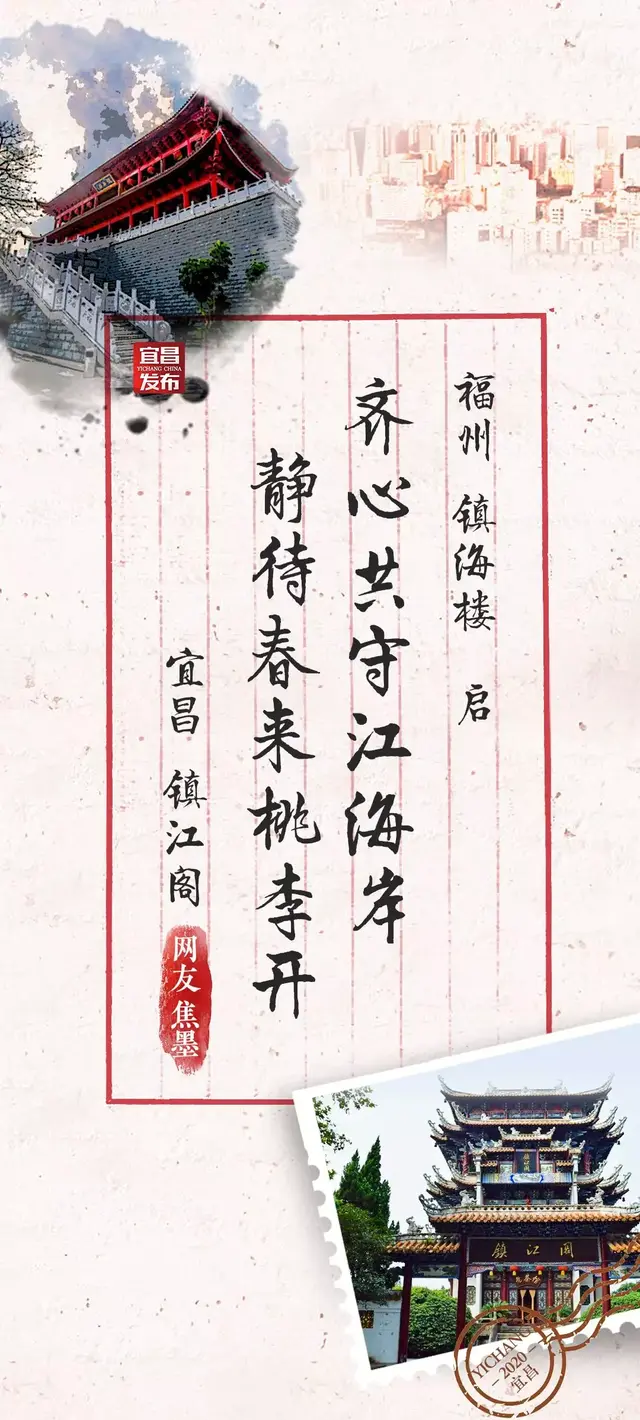 福州 镇海楼 启
齐心共守江海岸
静待春来桃李开
宜昌 镇江阁
网友 焦墨
宜昌
YICHANG CHINA
发布
鎮江閣
YICHANG
2020
宜昌